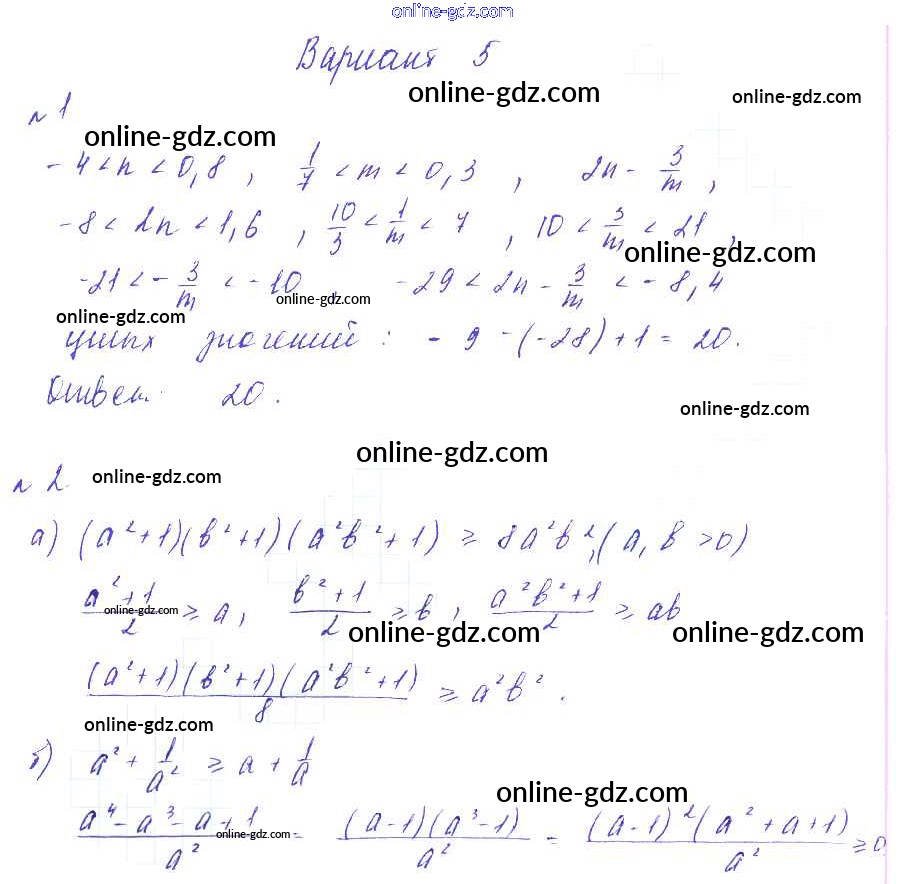 online-gdz.com
Вариант 5
online-gdz.com online-gdz.com
№ 1
online-gdz.com
-4 < n < 0,8 , 1/7 < m < 0,3 , 2n - 3/m ,
-8 < 2n < 1,6 , 10/3 < 1/m < 7 , 10 < 3/m < 21 ,
online-gdz.com
-21 < - 3/m < -10 -29 < 2n - 3/m < -8,4
online-gdz.com
online-gdz.com
целых значений : -9 - (-28) + 1 = 20.
Ответ: 20.
online-gdz.com
online-gdz.com
№ 2. online-gdz.com
а) (a²+1)(b²+1)(a²b²+1) ≥ 8a²b², (a, b > 0)
(a²+1)/2 ≥ a, (b²+1)/2 ≥ b, (a²b²+1)/2 ≥ ab
online-gdz.com
online-gdz.com online-gdz.com
(a²+1)(b²+1)(a²b²+1)/8 ≥ a²b².
online-gdz.com
б) a² + 1/a² ≥ a + 1/a
online-gdz.com
(a⁴-a³-a+1)/a² = (a-1)(a³-1)/a² = (a-1)²(a²+a+1)/a² ≥ 0
online-gdz.com